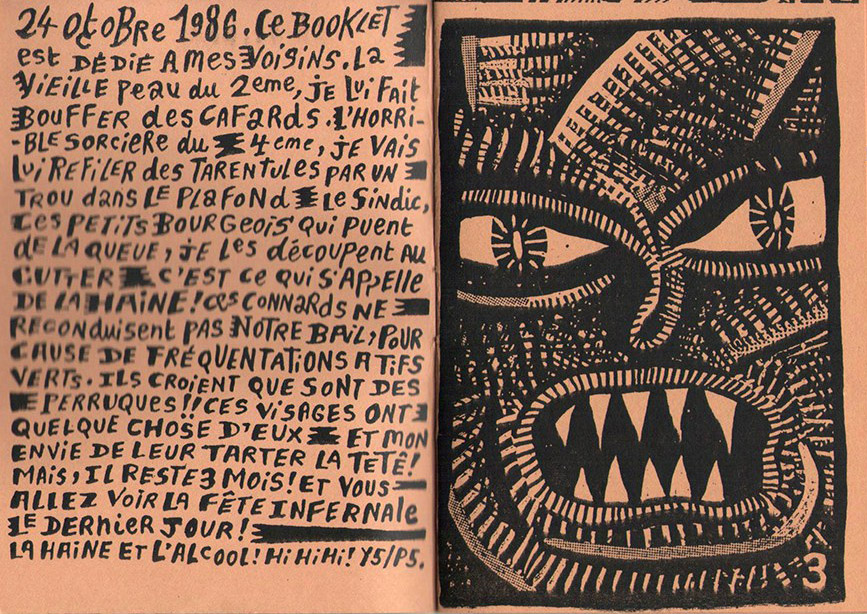 24 octoBre 1986. Ce BOOKLET
est DÉDIÉ A mes VOISINS. La
VIEILLE peau du 2eme, je LUI FAIT
BOUFFER des CAFARDS. L'HORRI-
-BLE SORCIERE du 4eme, je VAIS
LUI REFILER des TARENTULES PAR UN
TROU dans LE PLAFOND LE SINDIC,
CES PETITS BOURGEOIS QUI PUENT
DE LA QUEUE, je LES découpent AU
CUTTER C'EST CE QUI S'APPELLE
DE LA HAINE! CES CONNARDS NE
RECONDUISENT PAS NOTRE BAIL, POUR
CAUSE DE FRÉQUENTATIONS A TIFS
VERTS. ILS CROIENT QUE SONT DES
PERRUQUES!! CES VISAGES ONT
QUELQUE CHOSE D'EUX ET MON
ENVIE DE LEUR TARTER LA TETÊ!
MAIS, IL RESTE 3 MOIS! ET VOUS
ALLEZ VOIR LA FÊTE INFERNALE
LE DERNIER JOUR!
LA HAINE ET L'ALCOOL! HI HI HI! Y5/P5.
3